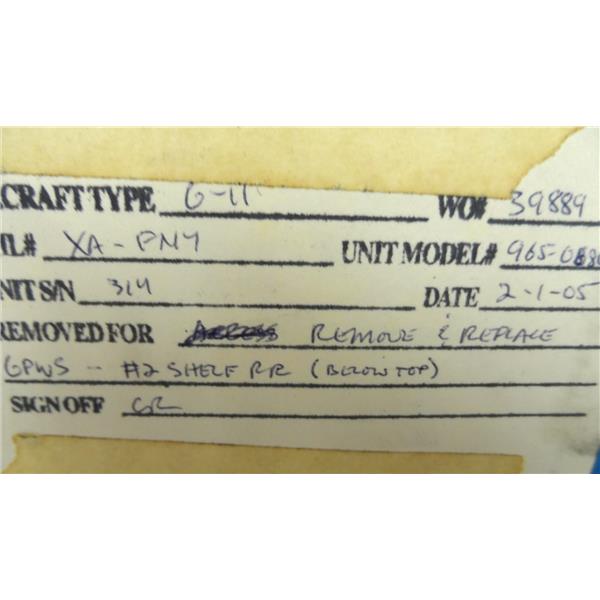 CRAFT TYPE G-II WO# 39889
IL# XA-PNY UNIT MODEL# 965-0
NIT S/N 314 DATE 2-1-05
REMOVED FOR REMOVE & REPLACE
GPWS - #2 SHELF RR (BELOW TOP)
SIGN OFF